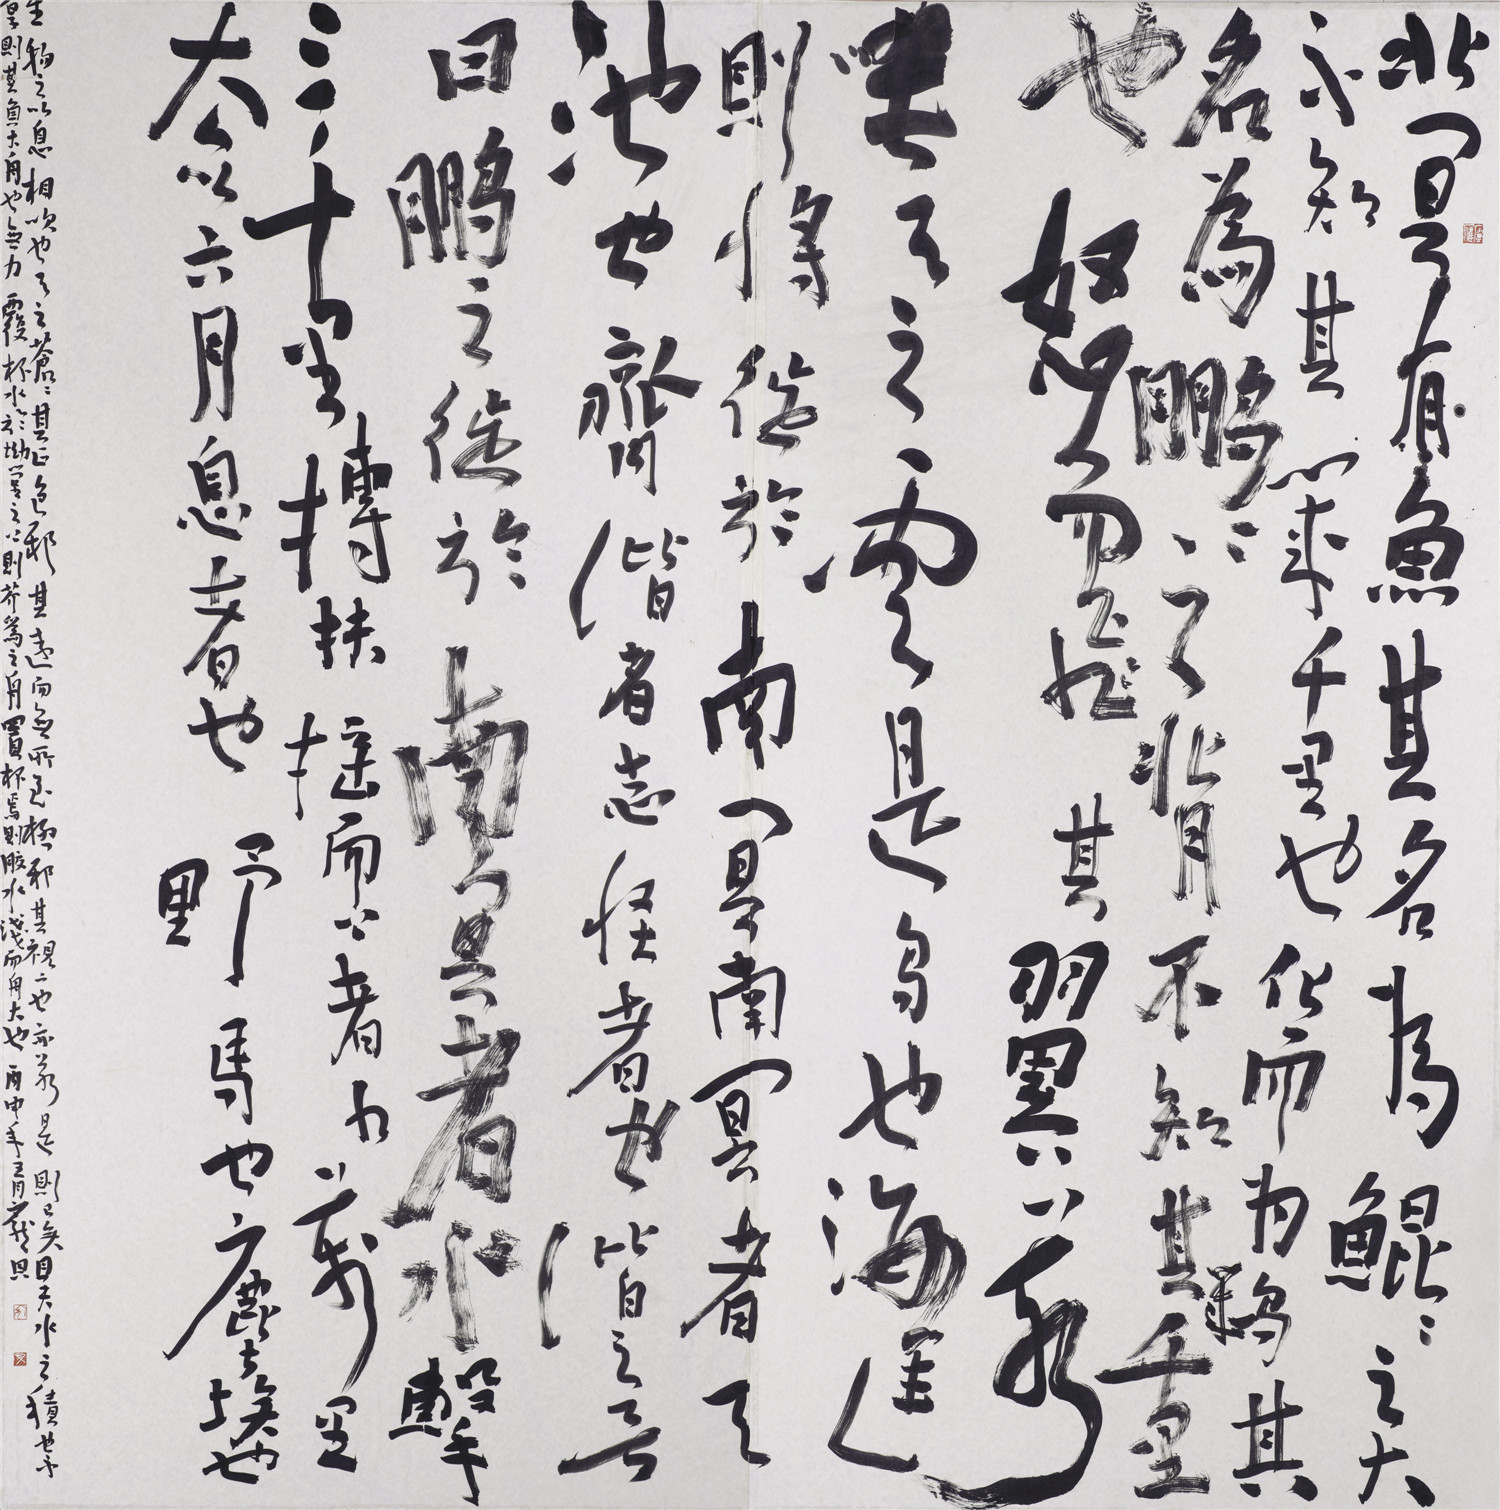 北冥有魚其名為鯤鯤之大
不知其幾千里也化而為鳥其
名為鵬鵬之背不知其幾千里
也怒而飛其翼若
垂天之雲是鳥也海運
則將徙於南冥南冥者天
池也齊諧者志怪者也諧之言
曰鵬之徙於南冥者水擊
三千里摶扶搖而上者九萬里
去以六月息者也野馬也塵埃也
生物之以息相吹也天之蒼蒼其正色邪其遠而無所至極邪其視下也亦若是則已矣且夫水之積也不
厚則其負大舟也無力覆杯水於坳堂之上則芥為之舟置杯焉則膠水淺而舟大也丙申年